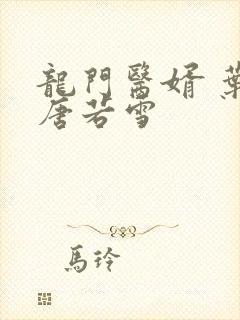 龍門醫婿 葉
唐若雪
馬玲